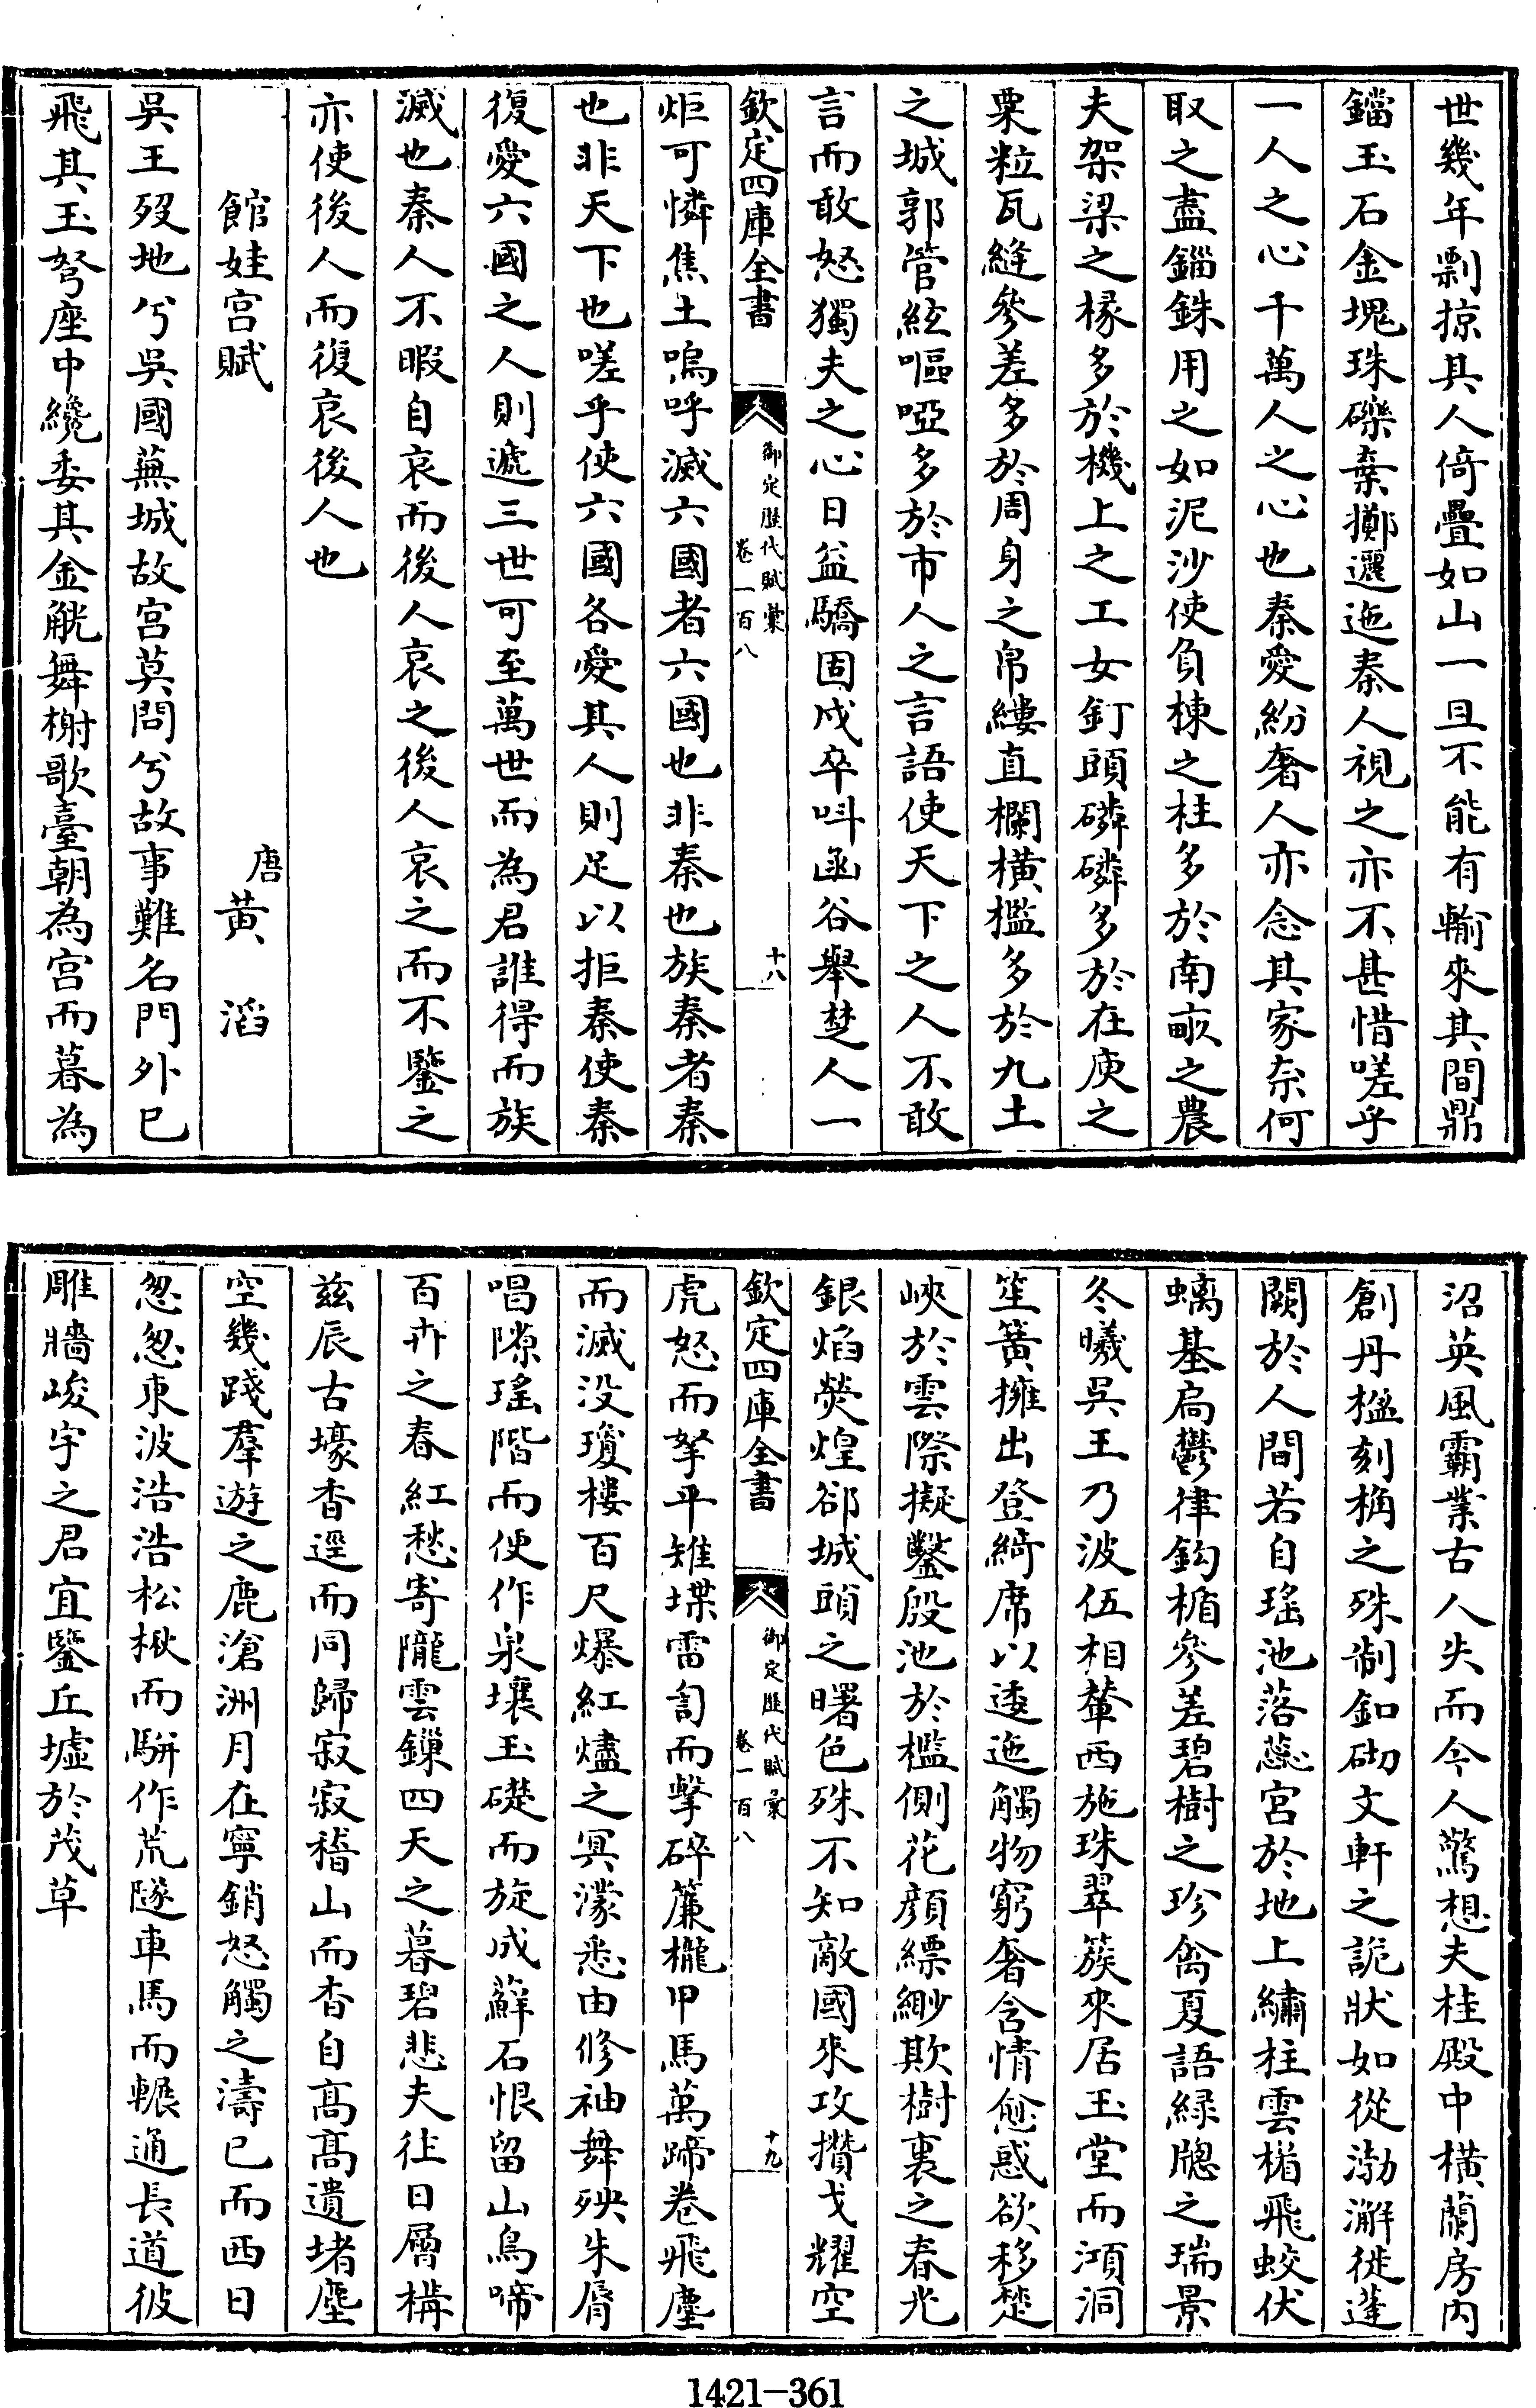 世幾年剽掠其人倚疊如山一旦不能有輸來其間鼎
鐺玉石金塊珠礫棄擲邐迤秦人視之亦不甚惜嗟乎
一人之心千萬人之心也秦愛紛奢人亦念其家柰何
取之盡錙銖用之如泥沙使負棟之柱多於南畝之農
夫架梁之椽多於機上之工女釘頭磷磷多於在庾之
粟粒瓦縫參差多於周身之帛縷直欄橫檻多於九土
之城郭管絃嘔啞多於市人之言語使天下之人不敢
言而敢怒獨夫之心日益驕固戍卒叫函谷舉楚人一
欽定四庫全書
御定歷代賦彙
卷一百八
十八
炬可憐焦土嗚呼滅六國者六國也非秦也族秦者秦
也非天下也嗟乎使六國各愛其人則足以拒秦使秦
復愛六國之人則遞三世可至萬世而為君誰得而族
滅也秦人不暇自哀而後人哀之後人哀之而不鑒之
亦使後人而復哀後人也
館娃宮賦
唐
黃滔
吳王歿地兮吳國蕪城故宮莫問兮故事難名門外已
飛其玉弩座中纔委其金觥舞榭歌臺朝為宮而暮為
沼英風霸業古人失而今人驚想夫桂殿中橫蘭房內
創丹楹刻桷之殊制釦砌文軒之詭狀如從渤澥徙蓬
闕於人間若自瑤池落蕊宮於地上繡柱雲楣飛蛟伏
螭基扃鬱律鈎楯參差碧樹之珍禽夏語綠牕之瑞景
冬曦吳王乃波伍相輦西施珠翠簇來居玉堂而澒洞
笙簧擁出登綺席以逶迤觸物窮奢含情愈惑欲移楚
峽於雲際擬鑿殷池於檻側花顏縹緲欺樹裏之春光
銀焰熒煌卻城頭之曙色殊不知敵國來攻攢戈耀空
欽定四庫全書
御定歷代賦彙
卷一百八
十九
虎怒而拏平雉堞雷訇而擊碎簾櫳甲馬萬蹄卷飛塵
而滅沒瓊樓百尺爆紅燼之冥濛悉由修袖舞殃朱脣
唱隙瑤階而便作泉壤玉礎而旋成蘚石恨留山鳥啼
百卉之春紅愁寄隴雲鏁四天之暮碧悲夫往日層構
茲辰古壕香逕而同歸寂寂稽山而杳自高高遺堵塵
空幾踐羣遊之鹿滄洲月在寧銷怒觸之濤已而西日
怱怱東波浩浩松楸而騈作荒隧車馬而輾通長道彼
雕牆峻宇之君宜鑒丘墟於茂草
1421-361